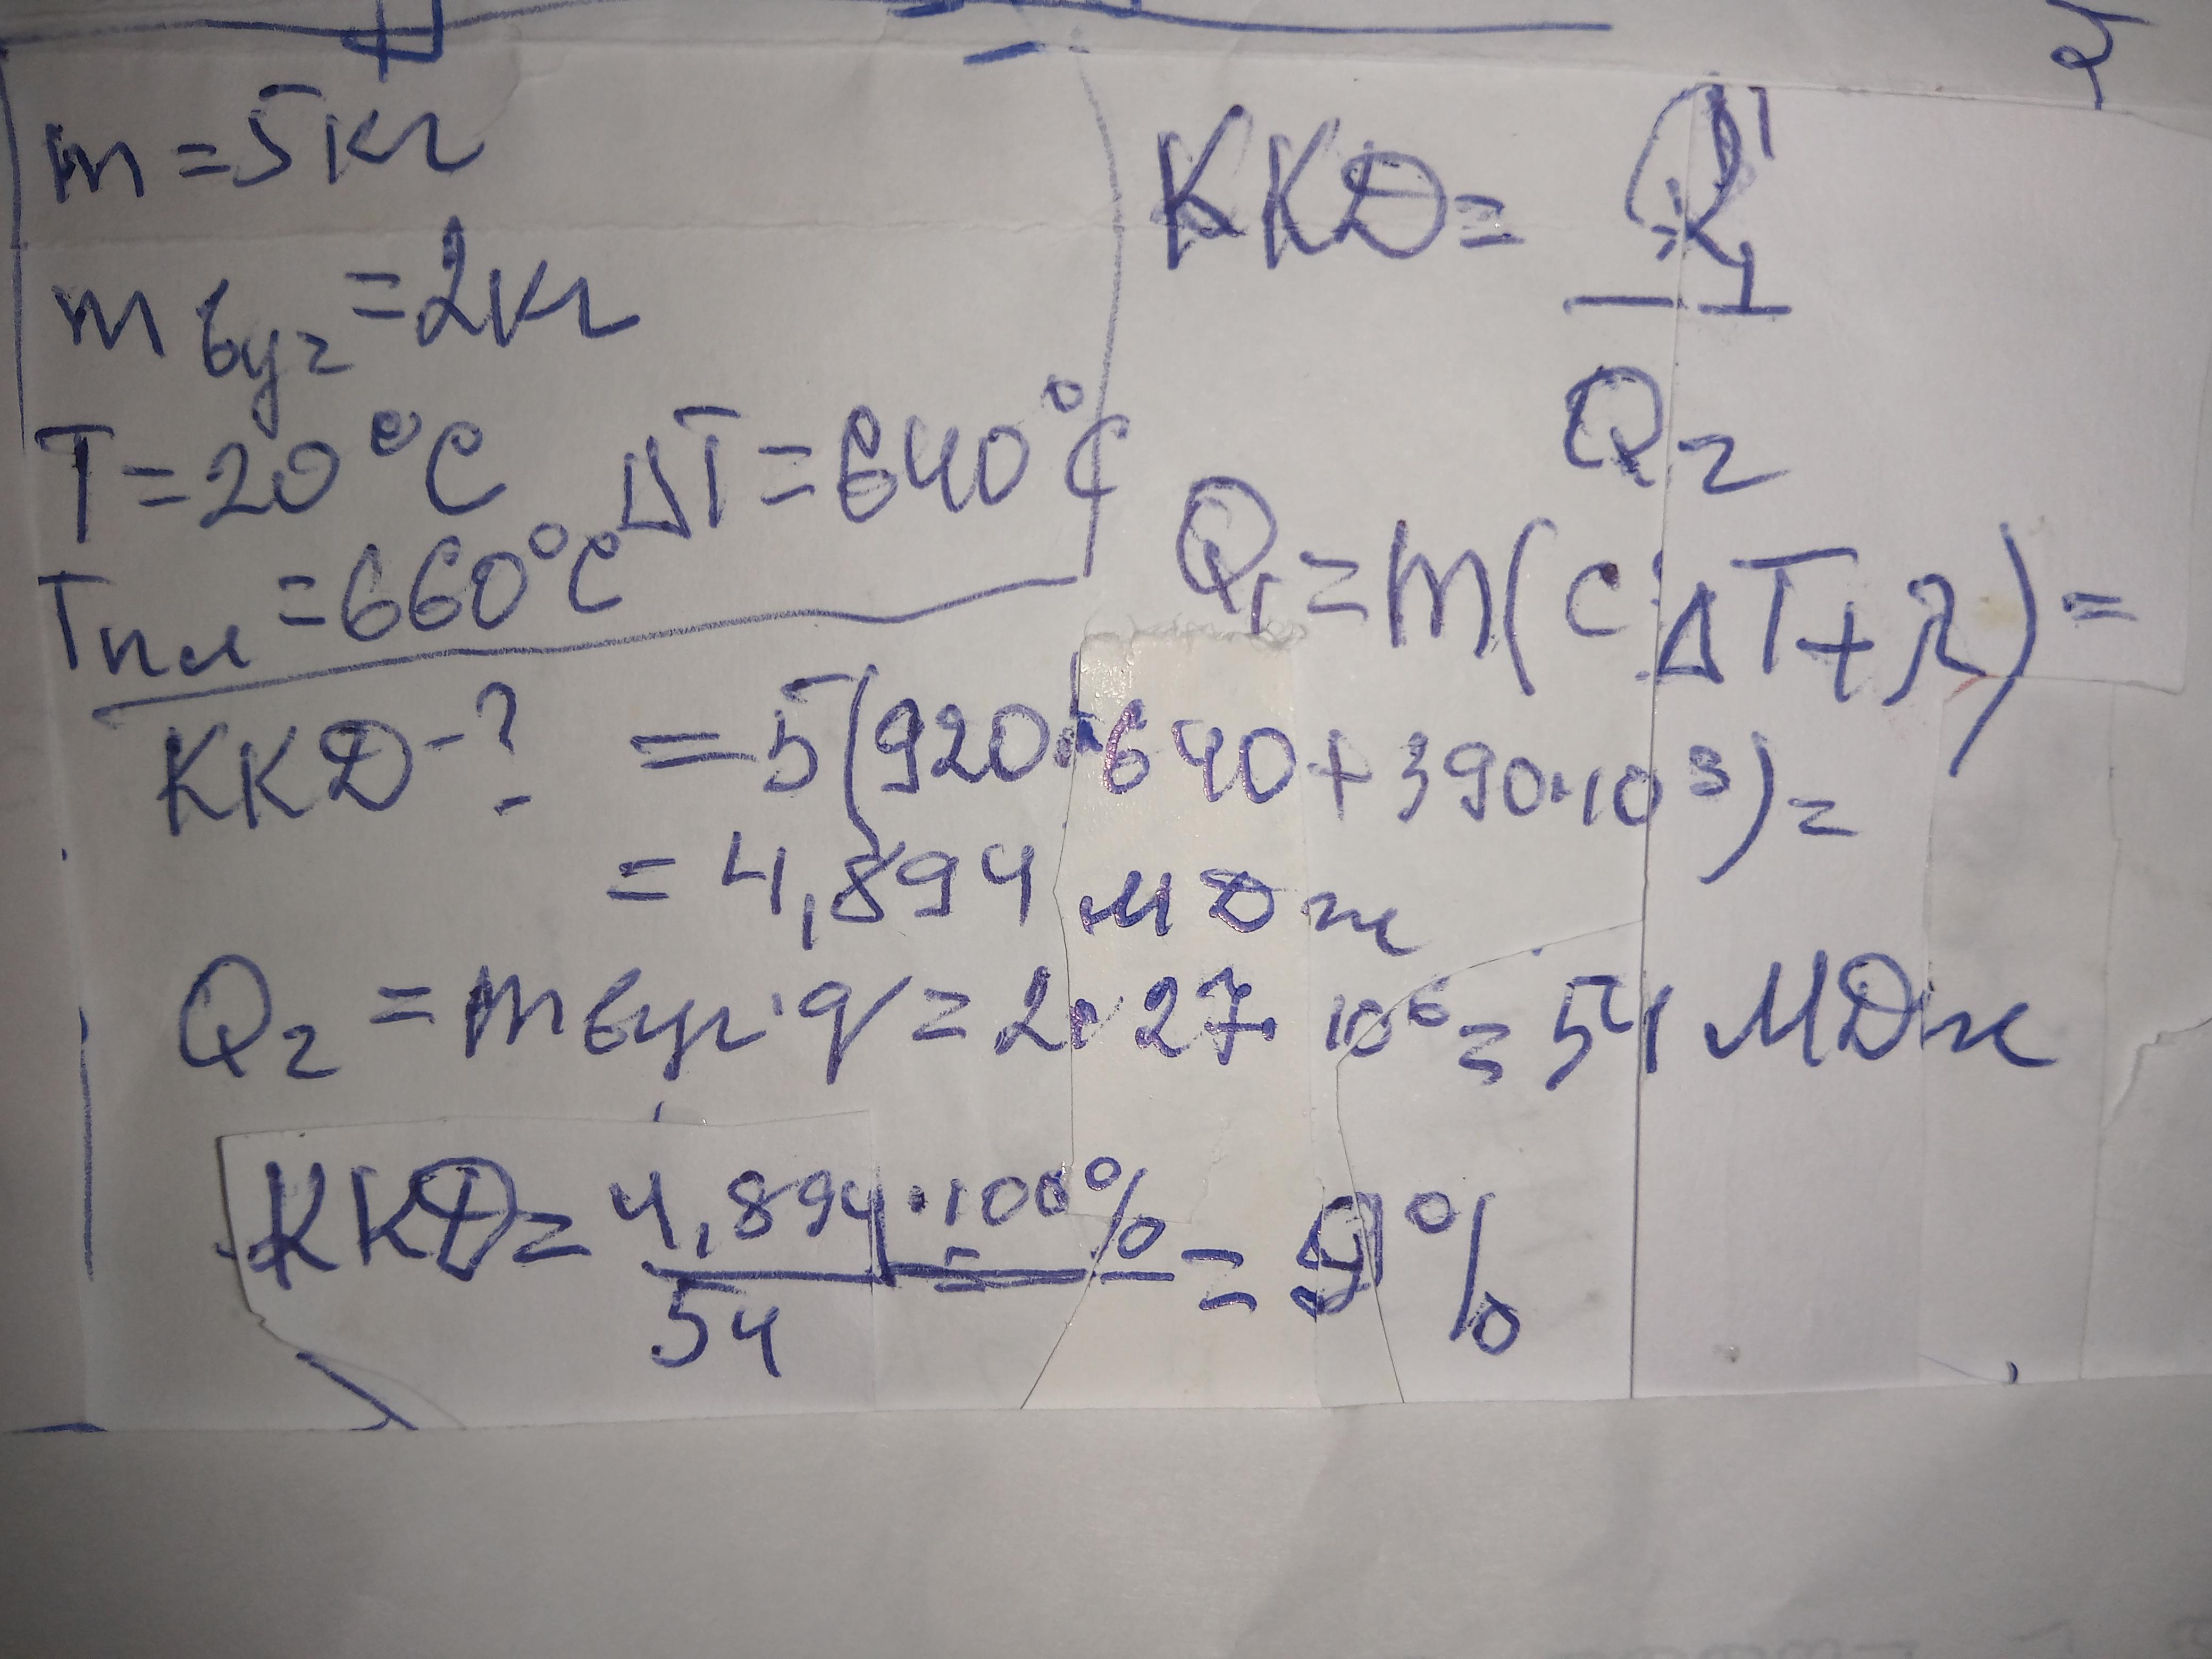 m = 5 кг
m вуг = 2 кг
T = 20 °C ΔT = 640 °C
Tпл = 660 °C
ККД - ?
ККД = Q1 / Q2
Q1 = m(c·ΔT + λ) =
= 5(920·640 + 390·10³) =
= 4,894 МДж
Q2 = m вуг·q = 2·27·10⁶ = 54 МДж
ККД = 4,894·100% / 54 = 9%